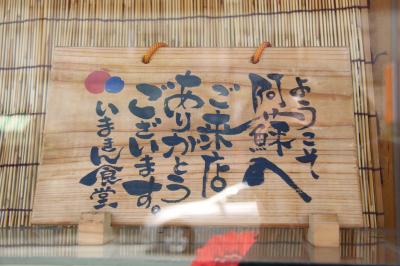 ようこそ
阿蘇へ
ご来店
ありがとう
ございます。
いまきん食堂